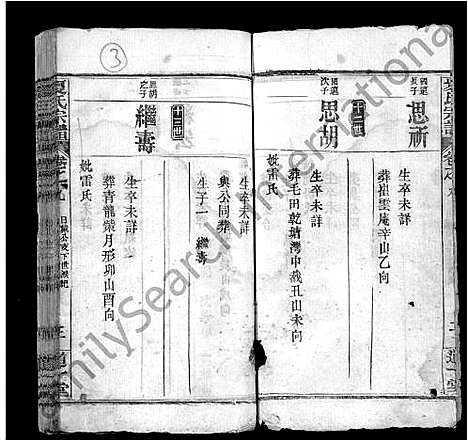 3
夏氏宗譜
卷之
國選
長子
思祈
生卒未詳
葬摧雲庵辛山乙向
十二世
國選
次子
思胡
生卒未詳
葬毛田乾塘灣中嵗丑山未向
妣雷氏
生卒未詳
與公同葬
生子一 繼壽
十三世
思胡
之子
繼壽
生卒未詳
葬青龍嶺月形卯山酉向
妣雷氏
夏氏宗譜
卷之九
三
道一堂
FamilySearch International